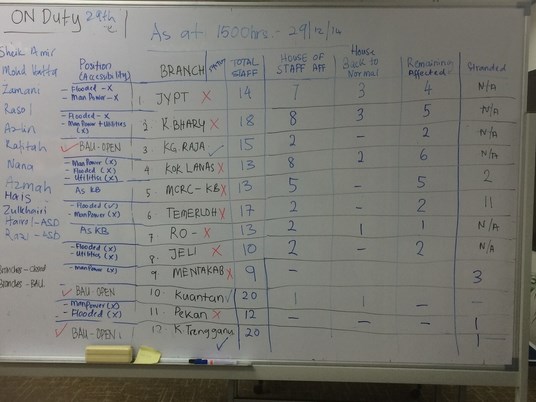 ON DUTY 29th
As at: 1500hrs - 29/12/14
Sheik Amir
Mohd
Zamani
Rasol
Azlin
Rafitah
Nana
Azmah
Hals
Zulkhairi
Hairol-ASD
Razi-ASD
Branches-Closed
Branches-BAU
Position (Accessibility) BRANCH TOTAL STAFF HOUSE OF STAFF AFF House Back to Normal Remaining Affected Stranded
- Flooded - X
- Man Power - X
1 JYPT X 14 7 3 4 N/A
- Flooded - X
- Man Power + Utilities (x)
2. K BHARY X 18 8 3 5 N/A
✓ BAU-OPEN 3. KG RAJA ✓ 15 2 - 2 N/A
- Man Power (x)
- Flooded (x)
Utilities (x)
4 KOK LANAS X 13 8 2 6 N/A
As KB 5. MCRC-KB X 13 5 - 5 2
- Flooded (✓)
- Man Power (x)
6 TEMERLOH X 17 2 - 2 11
As KB 7. RO - X 13 2 1 1 N/A
- Flooded (x)
- Utilities (x)
8. JELI X 10 2 - 2 N/A
- Man Power (x) 9 MENTAKAB X 9 - 3
✓ BAU OPEN 10. Kuantan ✓ 20 1 1 - -
- Man Power (x)
- Flooded (x)
11. Pekan X 12 - - - 1
✓ BAU-OPEN 12. K Trengganu ✓ 20 1